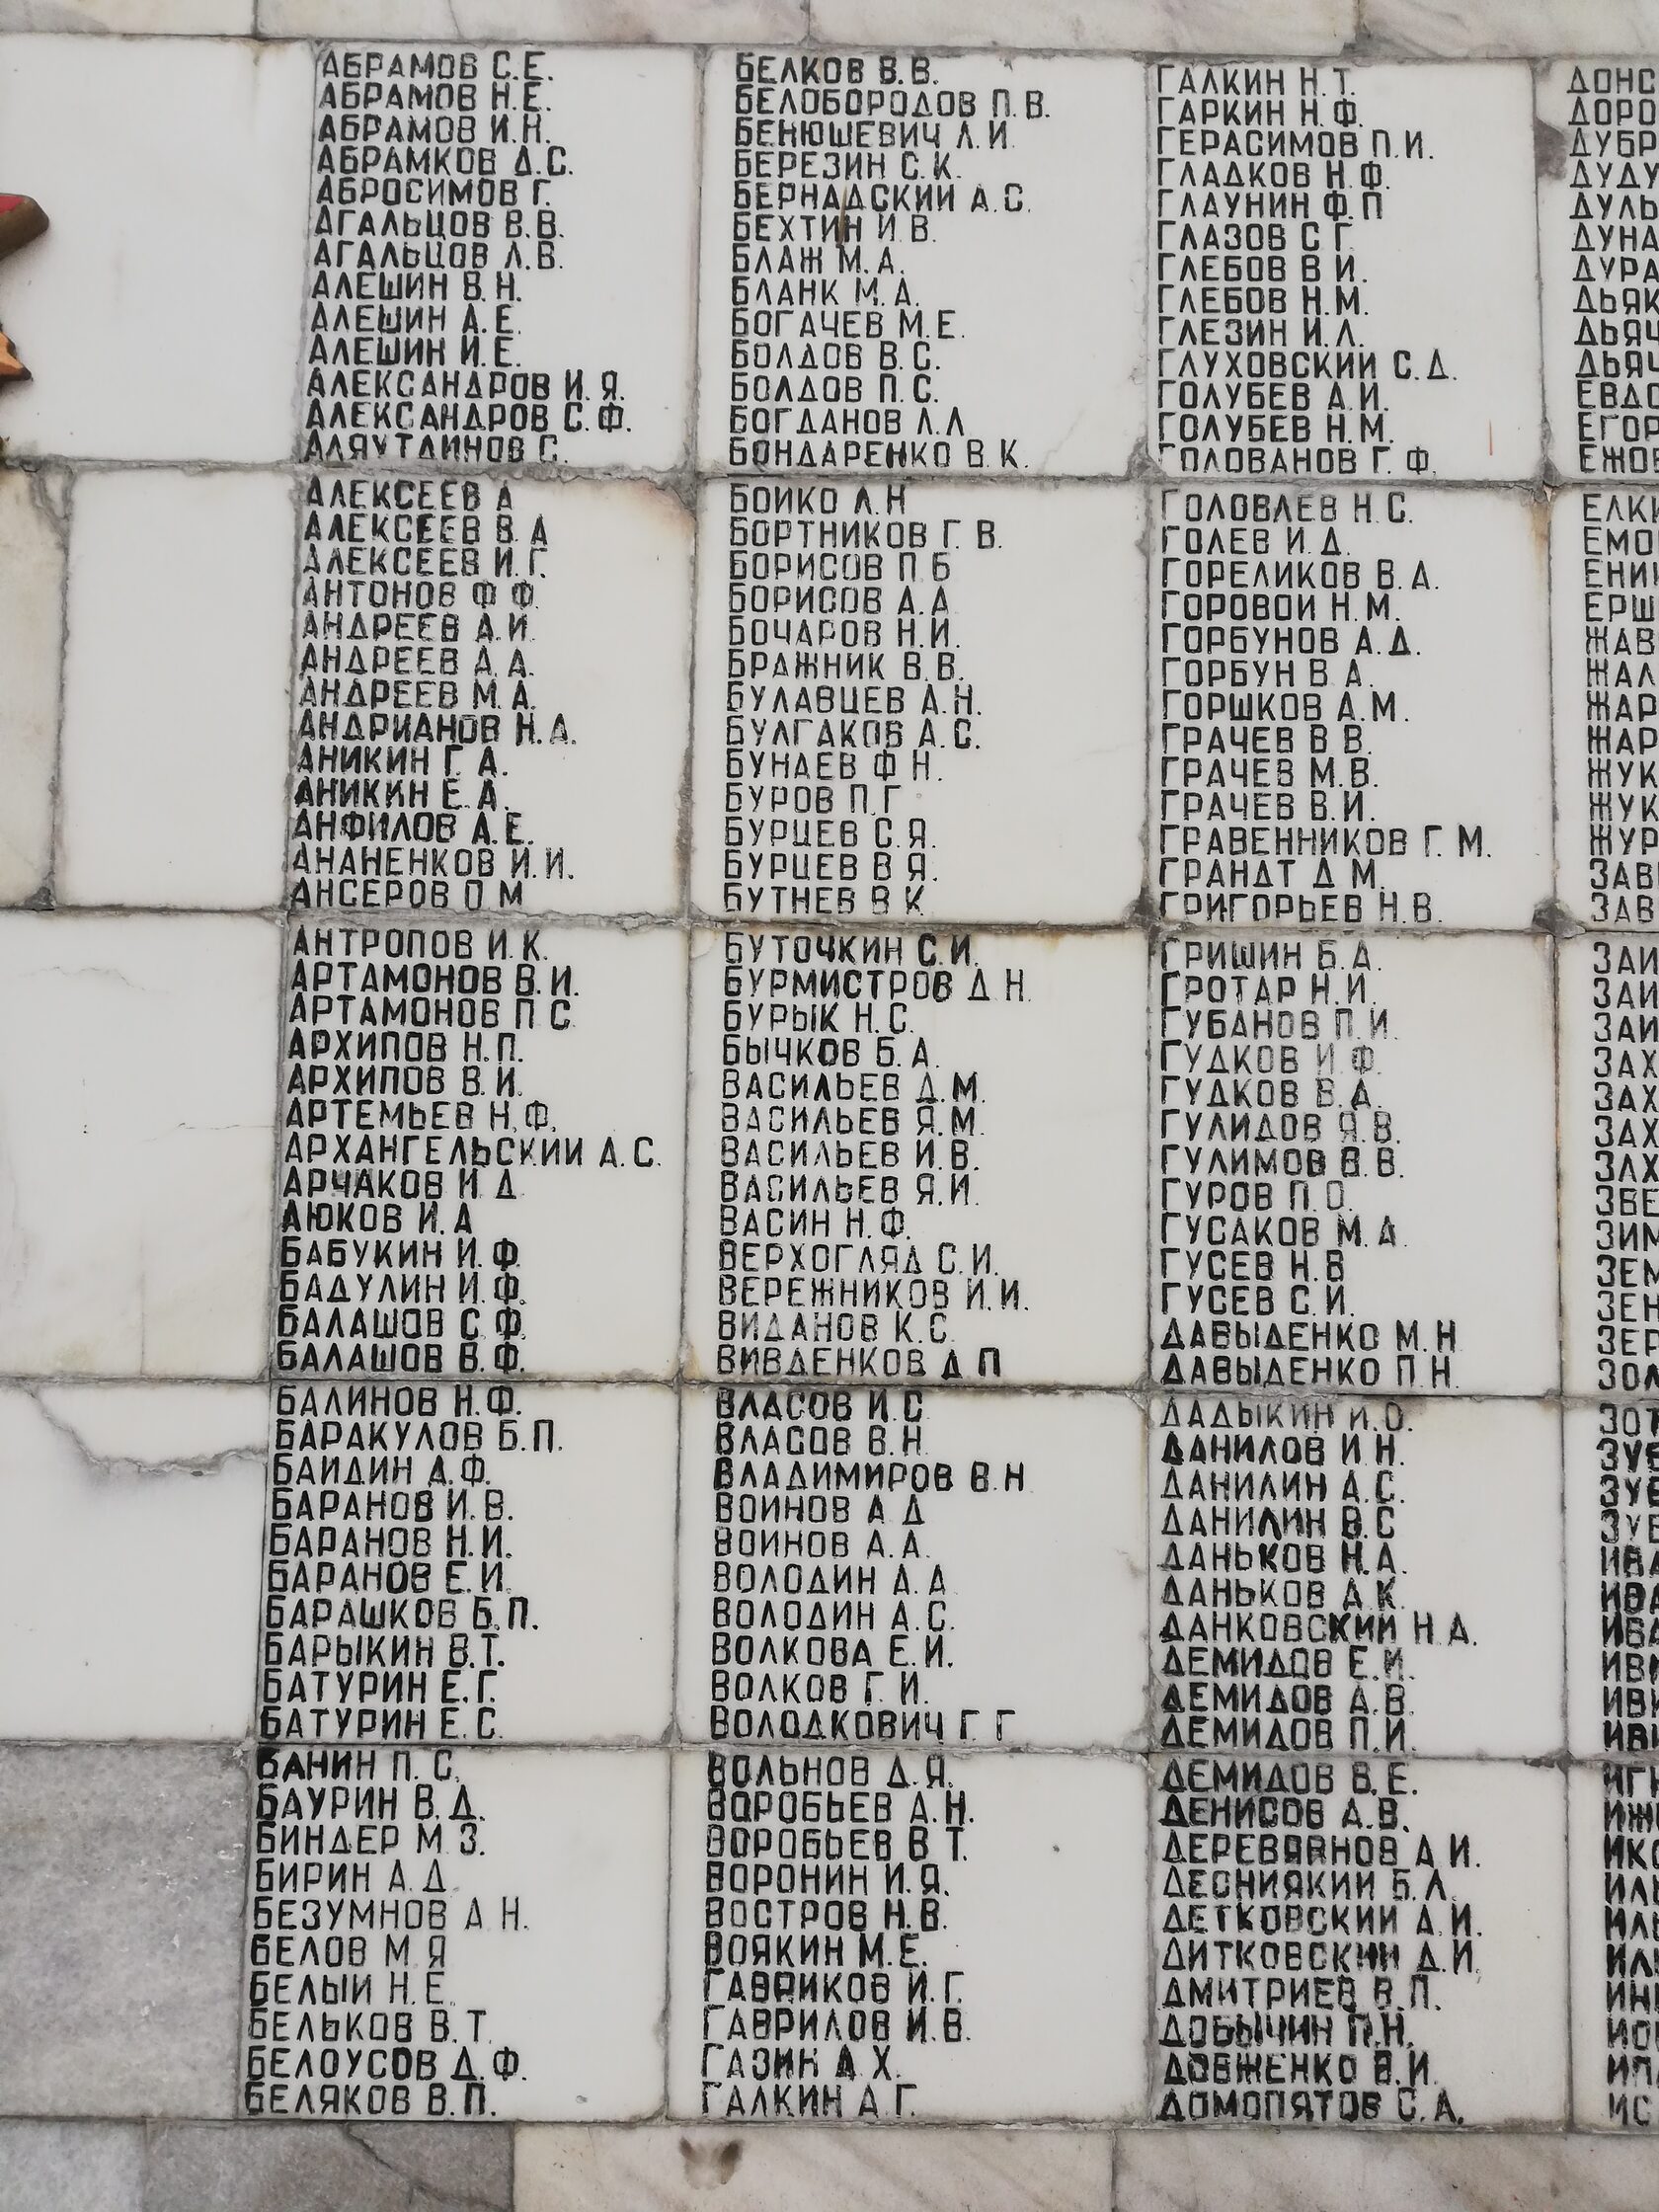 АБРАМОВ С.Е.
АБРАМОВ Н.Е.
АБРАМОВ И.Н.
АБРАМКОВ Д.С.
АБРОСИМОВ Г.
АГАЛЬЦОВ В.В.
АГАЛЬЦОВ Л.В.
АЛЕШИН В.Н.
АЛЕШИН А.Е.
АЛЕШИН И.Е.
АЛЕКСАНДРОВ И.Я.
АЛЕКСАНДРОВ С.Ф.
АЛЯУТДИНОВ С.
АЛЕКСЕЕВ А
АЛЕКСЕЕВ В.А
АЛЕКСЕЕВ И.Г.
АНТОНОВ Ф Ф
АНДРЕЕВ А.И.
АНДРЕЕВ А.А.
АНДРЕЕВ М.А.
АНДРИАНОВ Н.А.
АНИКИН Г.А.
АНИКИН Е.А.
АНФИЛОВ А.Е.
АНАНЕНКОВ И.И.
АНСЕРОВ О М
АНТРОПОВ И.К.
АРТАМОНОВ В.И.
АРТАМОНОВ П С
АРХИПОВ Н.П.
АРХИПОВ В.И.
АРТЕМЬЕВ Н.Ф.
АРХАНГЕЛЬСКИИ А.С.
АРЧАКОВ И Д
АЮКОВ И.А
БАБУКИН И.Ф.
БАДУЛИН И.Ф.
БАЛАШОВ С.Ф.
БАЛАШОВ В.Ф.
БАЛИНОВ Н.Ф.
БАРАКУЛОВ Б.П.
БАИДИН А.Ф.
БАРАНОВ И.В.
БАРАНОВ Н.И.
БАРАНОВ Е.И.
БАРАШКОВ Б.П.
БАРЫКИН В.Т.
БАТУРИН Е.Г.
БАТУРИН Е.С.
БАНИН П.С.
БАУРИН В.Д.
БИНДЕР М.З.
БИРИН А.Д.
БЕЗУМНОВ А.Н.
БЕЛОВ М Я
БЕЛЫИ Н.Е.
БЕЛЬКОВ В.Т.
БЕЛОУСОВ Д.Ф.
БЕЛЯКОВ В.П.
БЕЛКОВ В.В.
БЕЛОБОРОДОВ П.В.
БЕНЮШЕВИЧ Л.И.
БЕРЕЗИН С.К.
БЕРНАДСКИИ А.С.
БЕХТИН И.В.
БЛАЖ М.А.
БЛАНК М.А.
БОГАЧЕВ М.Е.
БОЛДОВ В.С.
БОЛДОВ П.С.
БОГДАНОВ Л.Л
БОНДАРЕНКО В.К.
БОИКО Л.Н
БОРТНИКОВ Г.В.
БОРИСОВ П Б
БОРИСОВ А.А
БОЧАРОВ Н.И.
БРАЖНИК В.В.
БУЛАВЦЕВ А.Н.
БУЛГАКОВ А.С.
БУНАЕВ Ф Н.
БУРОВ П.Г
БУРЦЕВ С.Я.
БУРЦЕВ В Я.
БУТНЕВ В К
БУТОЧКИН С.И.
БУРМИСТРОВ Д.Н.
БУРЫК Н.С.
БЫЧКОВ Б.А.
ВАСИЛЬЕВ Д.М.
ВАСИЛЬЕВ Я.М.
ВАСИЛЬЕВ И.В.
ВАСИЛЬЕВ Я.И.
ВАСИН Н.Ф.
ВЕРХОГЛЯД С.И.
ВЕРЕЖНИКОВ И.И.
ВИДАНОВ К.С.
ВИВДЕНКОВ Д П
ВЛАСОВ И.С
ВЛАСОВ В.Н
ВЛАДИМИРОВ В.Н
ВОИНОВ А Д
ВОИНОВ А.А.
ВОЛОДИН А.А
ВОЛОДИН А.С.
ВОЛКОВА Е.И.
ВОЛКОВ Г.И.
ВОЛОДКОВИЧ Г Г
ВОЛЬНОВ Д.Я.
ВОРОБЬЕВ А.Н.
ВОРОБЬЕВ В Т.
ВОРОНИН И.Я.
ВОСТРОВ Н.В.
ВОЯКИН М.Е.
ГАВРИКОВ И.Г.
ГАВРИЛОВ И.В.
ГАЗИН А Х.
ГАЛКИН А.Г.
ГАЛКИН Н.Т.
ГАРКИН Н.Ф.
ГЕРАСИМОВ П.И.
ГЛАДКОВ Н.Ф.
ГЛАУНИН Ф.П
ГЛАЗОВ С Г
ГЛЕБОВ В И.
ГЛЕБОВ Н.М.
ГЛЕЗИН И.Л.
ГЛУХОВСКИИ С.Д.
ГОЛУБЕВ А.И.
ГОЛУБЕВ Н.М.
ГОЛОВАНОВ Г.Ф.
ГОЛОВЛЕВ Н.С.
ГОЛЕВ И.Д.
ГОРЕЛИКОВ В.А.
ГОРОВОИ Н.М.
ГОРБУНОВ А.Д.
ГОРБУН В А.
ГОРШКОВ А.М.
ГРАЧЕВ В В.
ГРАЧЕВ М.В.
ГРАЧЕВ В.И.
ГРАВЕННИКОВ Г.М.
ГРАНДТ Д М.
ГРИГОРЬЕВ Н.В.
ГРИШИН Б.А.
ГРОТАР Н.И.
ГУБАНОВ П.И.
ГУДКОВ И.Ф.
ГУДКОВ В.А.
ГУЛИДОВ Я.В.
ГУЛИМОВ В.В.
ГУРОВ П.О.
ГУСАКОВ М.А.
ГУСЕВ Н.В
ГУСЕВ С.И.
ДАВЫДЕНКО М.Н
ДАВЫДЕНКО П.Н.
ДАДЫКИН И.О.
ДАНИЛОВ И Н.
ДАНИЛИН А.С.
ДАНИЛИН В.С
ДАНЬКОВ Н.А.
ДАНЬКОВ А.К.
ДАНКОВСКИИ Н.А.
ДЕМИДОВ Е.И.
ДЕМИДОВ А.В.
ДЕМИДОВ П.И.
ДЕМИДОВ В.Е.
ДЕНИСОВ А.В.
ДЕРЕВЯННОВ А.И.
ДЕОНИЯКИИ Б.Л.
ДЕТКОВСКИИ А.И.
ДИТКОВСКИИ Д.И.
ДМИТРИЕВ В.П.
ДОБЫЧИН П.Н.
ДОВЖЕНКО В.И.
ДОМОПЯТОВ С.А.
ДОНС
ДОРО
ДУБР
ДУДУ
ДУЛЬ
ДУНА
ДУРА
ДЬЯК
ДЬЯЧ
ДЬЯЧ
ЕВДО
ЕГОР
ЕЖОВ
ЕЛКИ
ЕМО
ЕНИ
ЕРШ
ЖАВ
ЖАЛ
ЖАР
ЖАР
ЖУК
ЖУК
ЖУР
ЗАВ
ЗАВ
ЗАИ
ЗАИ
ЗАИ
ЗАХ
ЗАХ
ЗАХ
ЗАХ
ЗВЕ
ЗИМ
ЗЕМ
ЗЕН
ЗЕР
ЗОЛ
ЗОТ
ЗУБ
ЗУБ
ЗУБ
ИВА
ИВА
ИВА
ИВИ
ИВИ
ИВИ
ИГН
ИЖ
ИКО
ИЛЬ
ИЛЬ
ИЛЬ
ИН
ИО
ИП
ИС